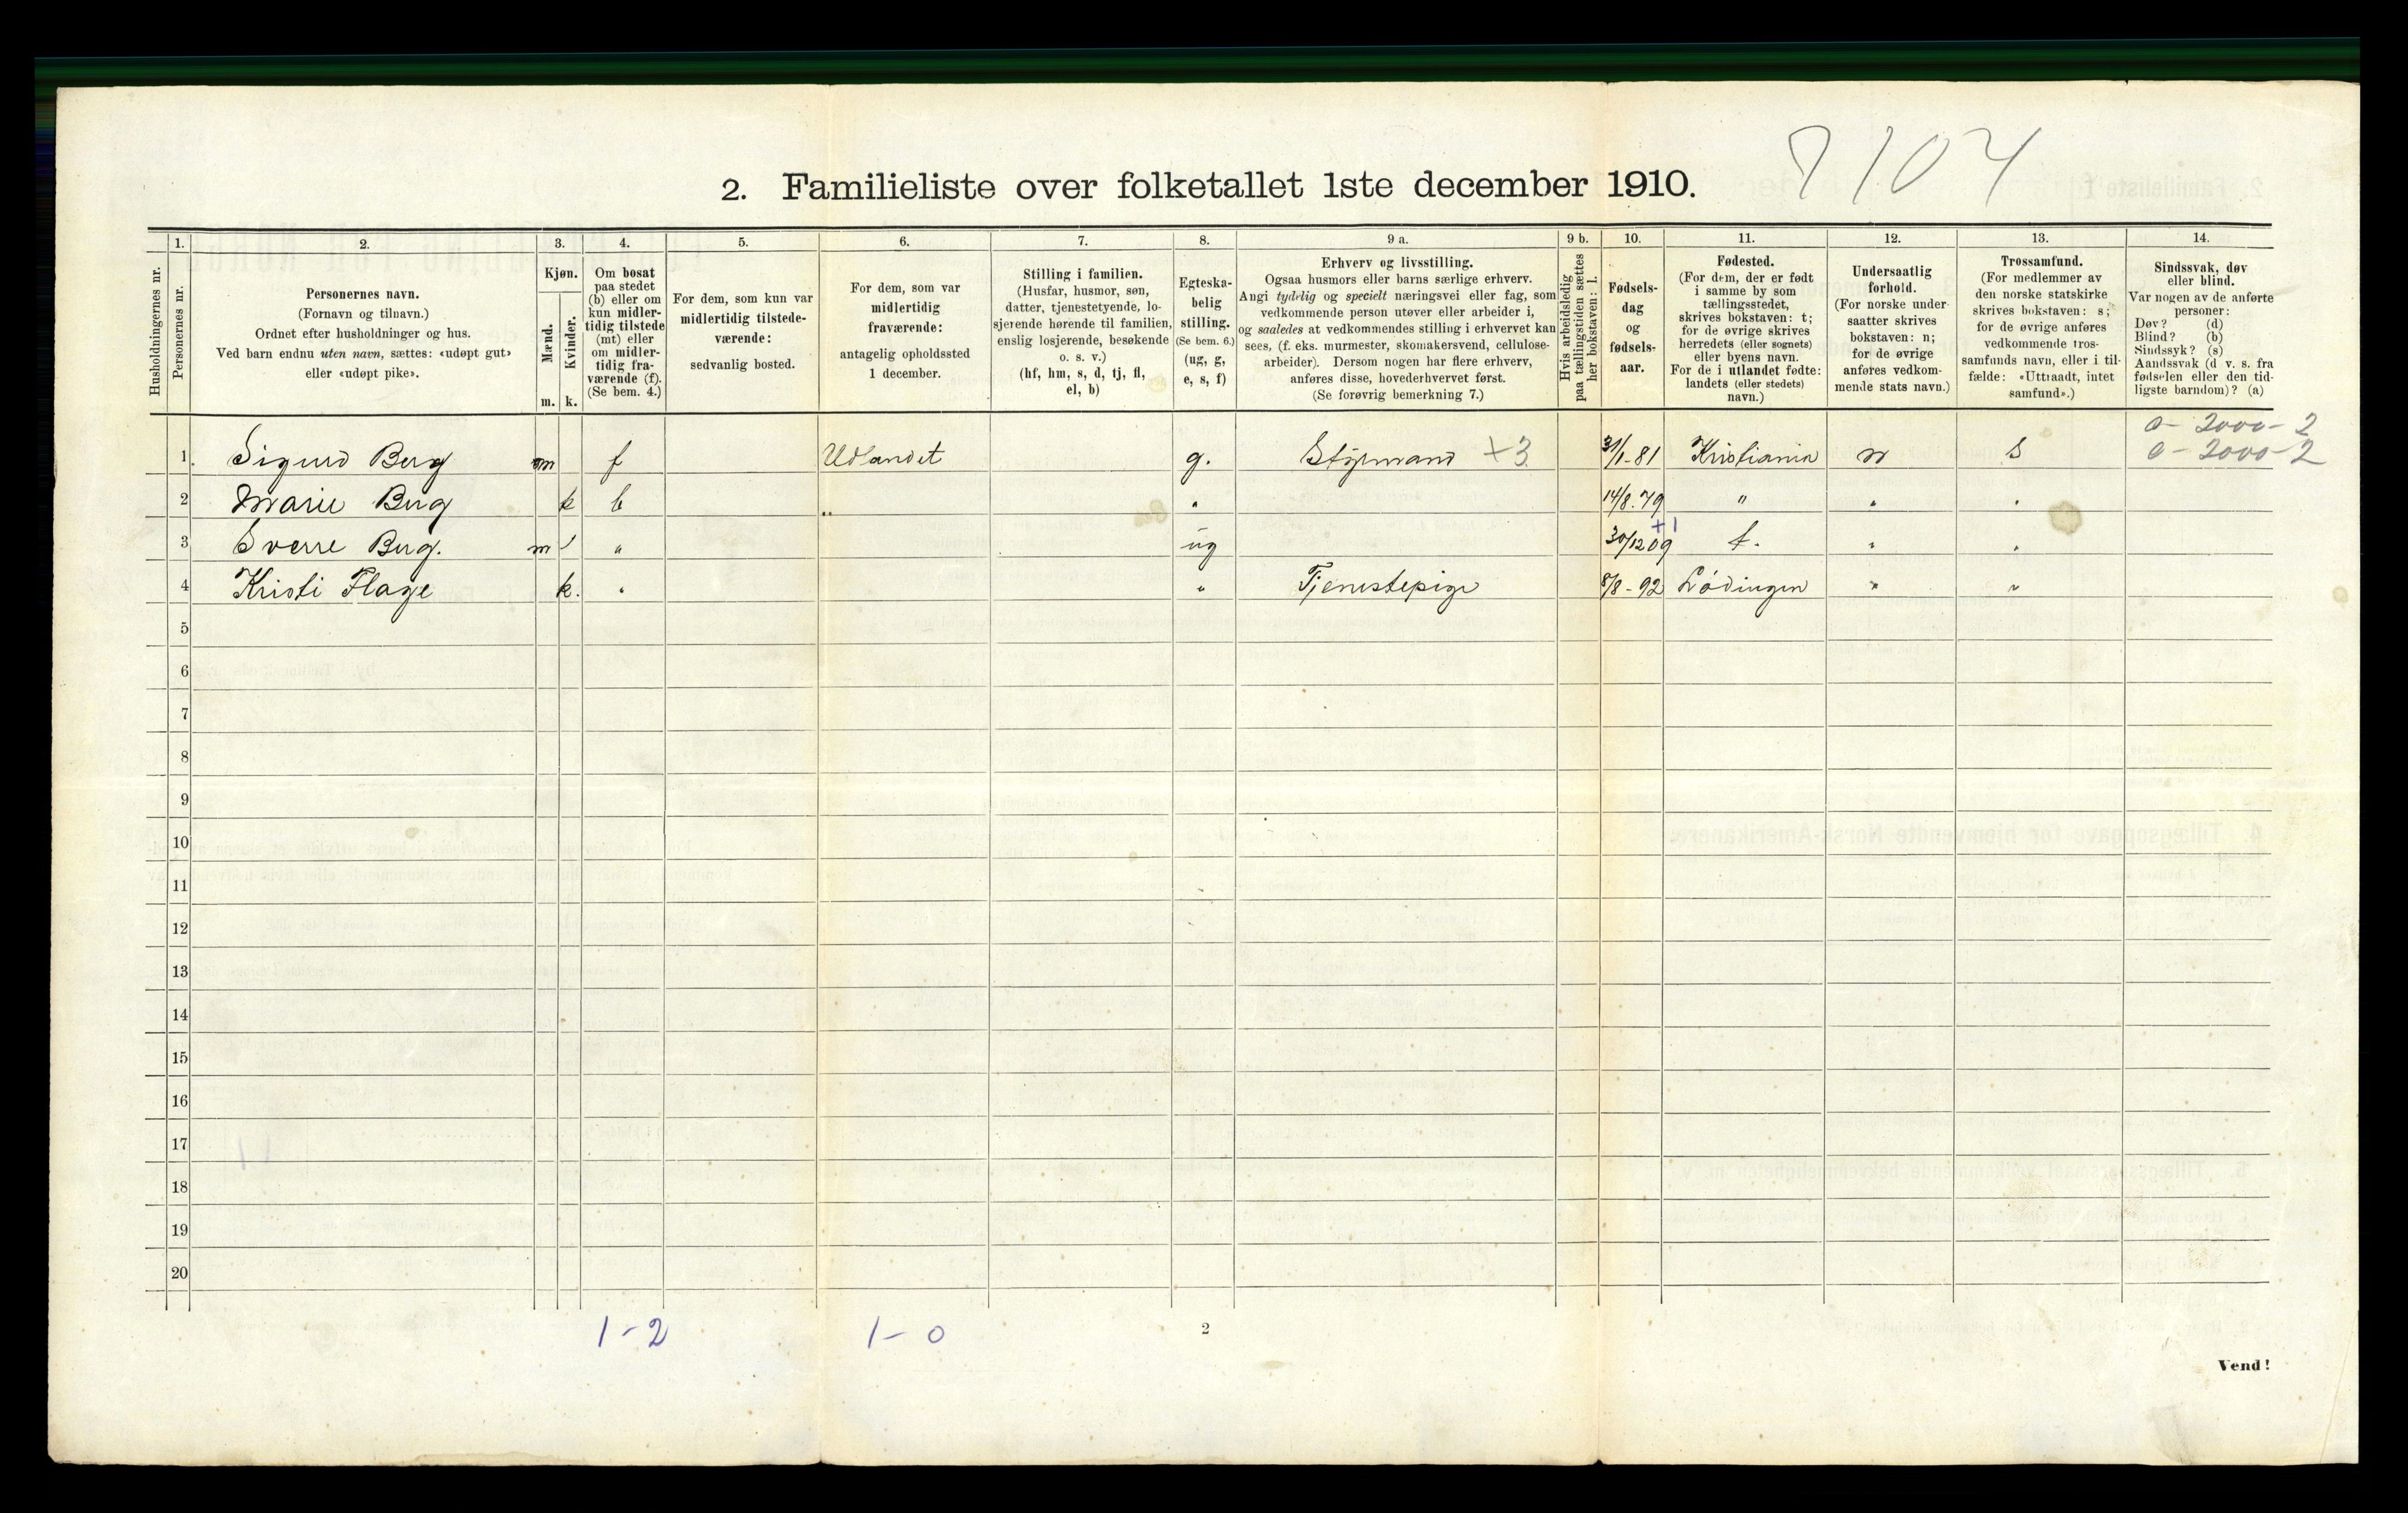 7104
2. Familieliste over folketallet 1ste december 1910.
Husholdningernes nr.
1.
Personernes nr.
2.
Personernes navn.
(Fornavn og tilnavn.)
Ordnet efter husholdninger og hus.
Ved barn endnu uten navn, sættes: «udøpt gut»
eller «udøpt pike».
3.
Kjøn.
Mænd.
Kvinder.
m. k.
4.
Om bosat
paa stedet
(b) eller om
kun midler-
tidig tilstede
(mt) eller
om midler-
tidig fra-
værende (f).
(Se bem. 4.)
5.
For dem, som kun var
midlertidig tilstede-
værende:
sedvanlig bosted.
6.
For dem, som var
midlertidig
fraværende:
antagelig opholdssted
1 december.
7.
Stilling i familien.
(Husfar, husmor, søn,
datter, tjenestetyende, lo-
sjerende hørende til familien,
enslig losjerende, besøkende
o. s. v.)
(hf, hm, s, d, tj, fl,
el, b)
8.
Egteska-
belig
stilling.
(Se bem. 6.)
(ug, g,
e, s, f)
9 a.
Erhverv og livsstilling.
Ogsaa husmors eller barns særlige erhverv.
Angi tydelig og specielt næringsvei eller fag, som
vedkommende person utøver eller arbeider i,
og saaledes at vedkommendes stilling i erhvervet kan
sees, (f. eks. murmester, skomakersvend, cellulose-
arbeider). Dersom nogen har flere erhverv,
anføres disse, hovederhvervet først.
(Se forøvrig bemerkning 7.)
9 b.
Hvis arbeidsledig
paa tællingstiden sættes
her bokstaven: l.
10.
Fødsels-
dag
og
fødsels-
aar.
11.
Fødested.
(For dem, der er født
i samme by som
tællingsstedet,
skrives bokstaven: t;
for de øvrige skrives
herredets (eller sognets)
eller byens navn.
For de i utlandet fødte:
landets (eller stedets)
navn.)
12.
Undersaatlig
forhold.
(For norske under-
saatter skrives
bokstaven: n;
for de øvrige
anføres vedkom-
mende stats navn.)
13.
Trossamfund.
(For medlemmer av
den norske statskirke
skrives bokstaven: s;
for de øvrige anføres
vedkommende tros-
samfunds navn, eller i til-
fælde: «Uttraadt, intet
samfund».)
14.
Sindssvak, døv
eller blind.
Var nogen av de anførte
personer:
Døv? (d)
Blind? (b)
Sindssyk? (s)
Aandssvak (d. v. s. fra
fødselen eller den tid-
ligste barndom)? (a)
0 - 2000 - 2
1. Sigurd Berg m f Udlandet g. Styrmand +3 31/1-81 Kristiania n s 0 - 2000 - 2
2 Marie Berg k b " " 14/8.79 " " "
+1
3 Sverre Berg. m " ug 30/12 09 t. " "
4 Kristi Flage k. " " Tjenestepige 8/8-92 Lødingen " "
5
6
7
8
9
10
11
12
13
14
15
16
17
18
19
20
1-2 1-0 2
Vend!